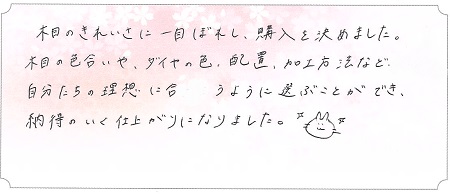 木目のきれいさに一目ぼれし、購入を決めました。
木目の色合いや、ダイヤの色、配置、加工方法など
自分たちの理想に合うように選ぶことができ、
納得のいく仕上がりになりました。